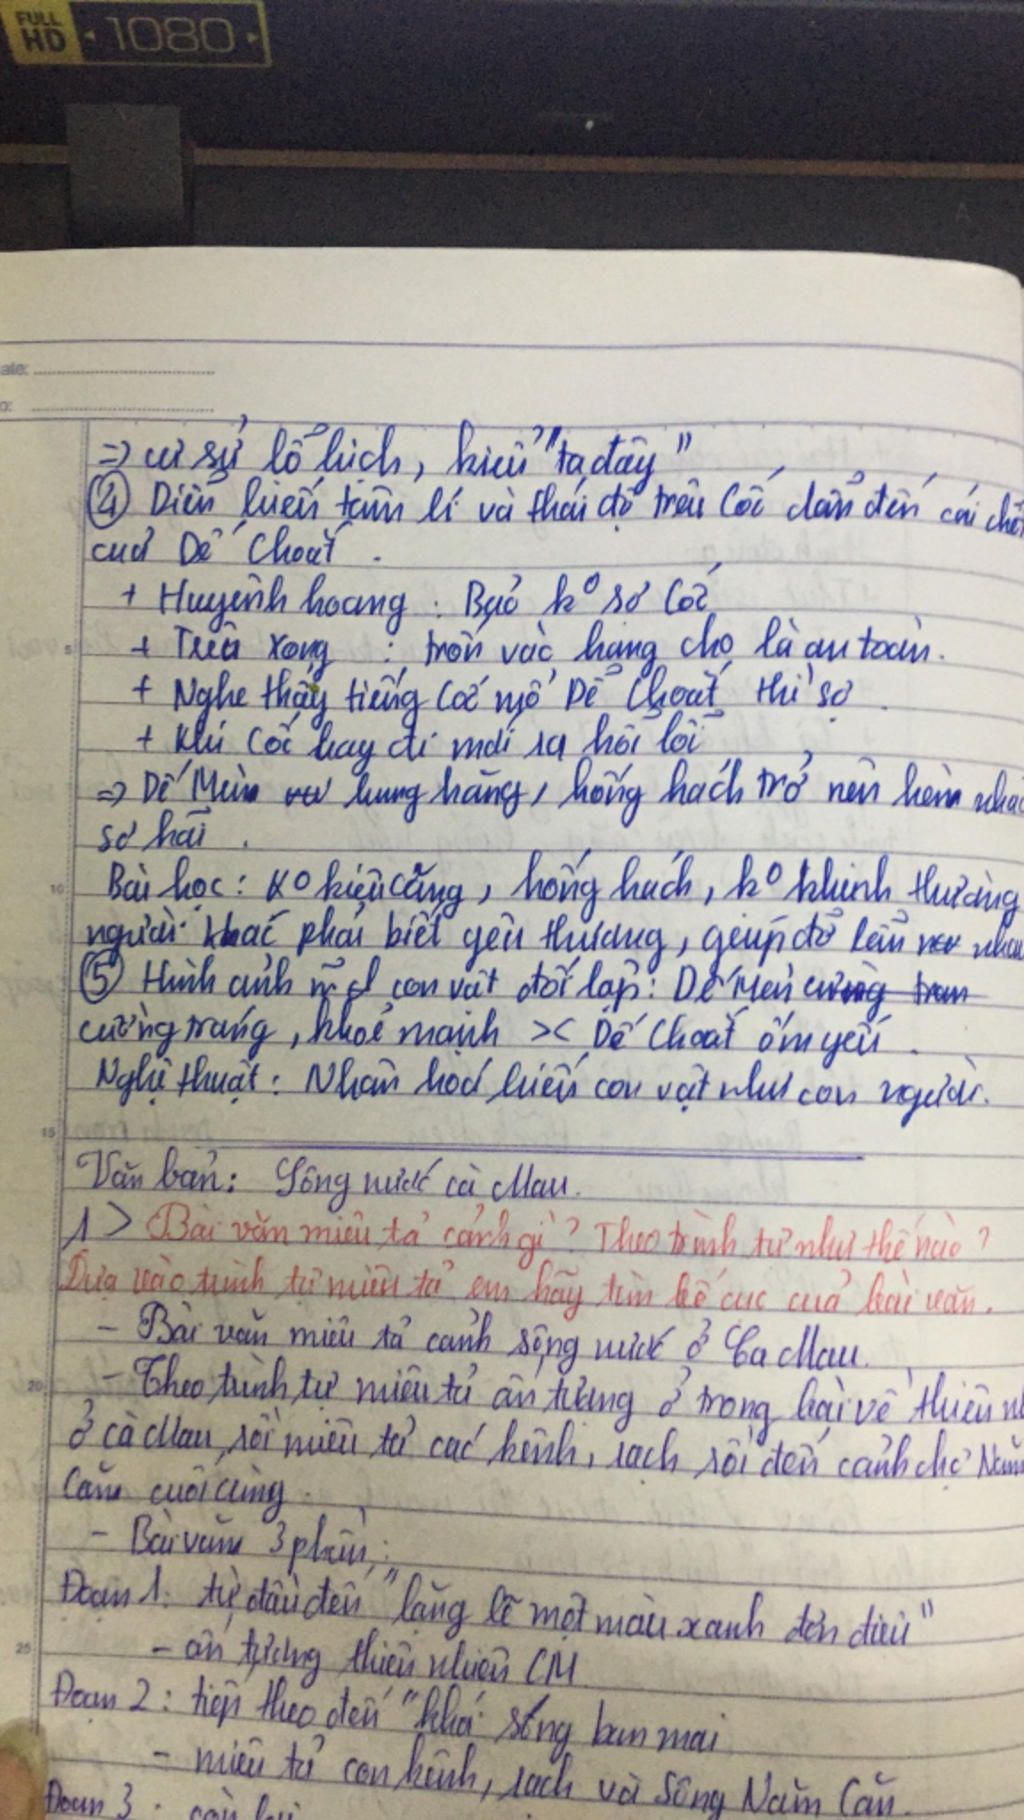 FULL HD 1080
ate:
o:
=> cư sử lố lịch, kiểu "ta đây"
④ Diễn biến tâm lí và thái độ trêu Cốc dẫn đến cái chế
của Dế Choắt.
+ Huyênh hoang : Bảo k° sợ Cốc
+ Trêu xong : trốn vào hang cho là an toàn.
+ Nghe thấy tiếng Cốc mổ Dế Choắt thì sợ.
+ Khi Cốc bay đi mới ra hối lỗi
=> Dế Mèn hung hăng, hống hách trở nên hèn nhá
sợ hãi.
10 Bài học: K° kiêu căng, hống hách, k° khinh thường
người khác phải biết yêu thương, giúp đỡ lẫn nhau
⑤ Hình ảnh con vật đối lập: Dế Mèn
cường tráng, khoẻ mạnh >< Dế Choắt ốm yếu.
Nghệ thuật: Nhân hoá biến con vật như con người.
15
Văn bản: Sông nước cà Mau.
1> Bài văn miêu tả cảnh gì? Theo trình tự như thế nào?
Dựa vào trình tự miêu tả em hãy tìm bố cục của bài văn.
- Bài văn miêu tả cảnh sông nước ở Cà Mau.
20 - Theo trình tự miêu tả ấn tượng ở trong bài về thiên nh
ở cà Mau, rồi miêu tả các kênh, rạch rồi đến cảnh chợ Năm
Căn cuối cùng.
- Bài văn 3 phần:
Đoạn 1: từ đầu đến "lặng lẽ một màu xanh đơn điệu"
25 - ấn tượng thiên nhiên CM
Đoạn 2: tiếp theo đến "khói sóng ban mai
- miêu tả con kênh, rạch và Sông Năm Căn.
Đoạn 3: còn lại